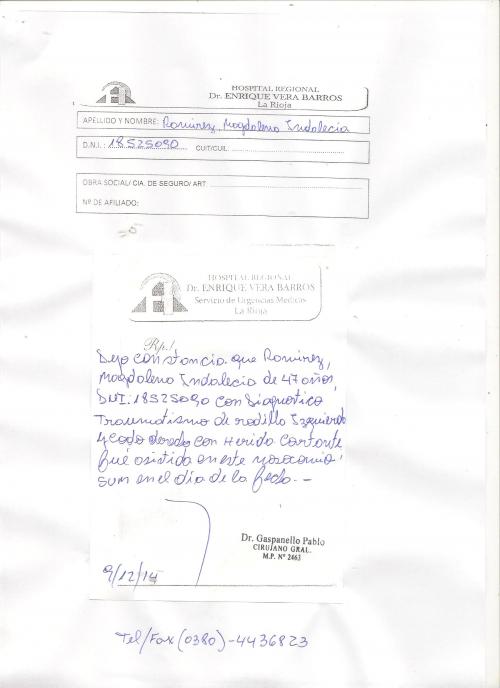 HOSPITAL REGIONAL
Dr. ENRIQUE VERA BARROS
La Rioja
APELLIDO Y NOMBRE: Ramirez, Magdalena Indalecia
D.N.I.: 18525090 CUIT/CUIL:
OBRA SOCIAL/ CIA. DE SEGURO/ ART
Nº DE AFILIADO:
HOSPITAL REGIONAL
Dr. ENRIQUE VERA BARROS
Servicio de Urgencias Médicas
La Rioja
Rp./
Dejo constancia que Ramirez,
Magdalena Indalecia de 47 años,
DNI: 18525090 con Diagnostico
Traumatismo de rodilla Izquierda
y codo derecho con Herida Cortante
fué asistida en este nosocomio
en el día de la fecha. —
Dr. Gaspanello Pablo
CIRUJANO GRAL.
M.P. Nº 2463
9/12/14
Tel/Fax (0380)-4436823